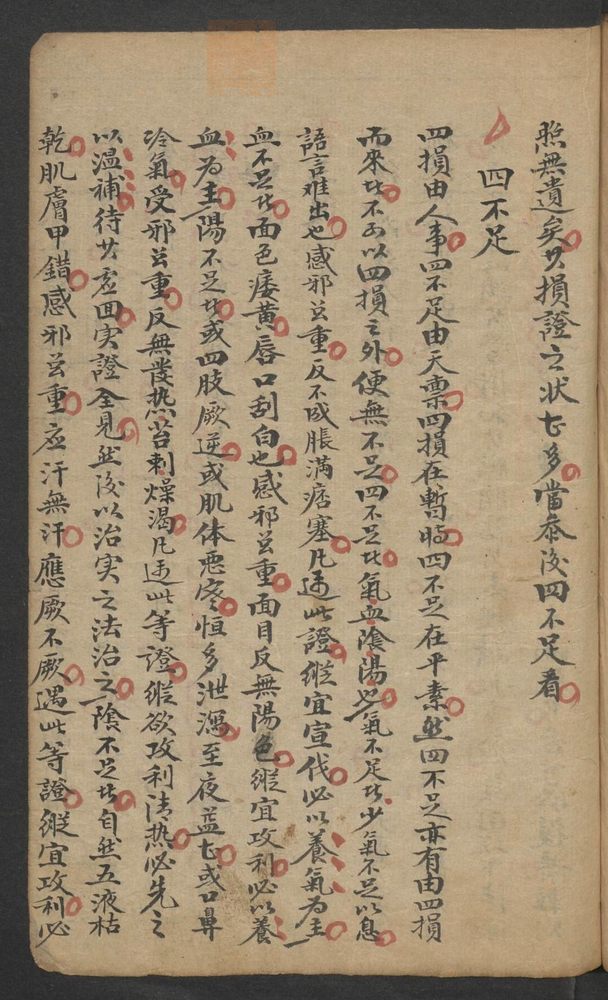 照無遺矣其損證之狀甚多當參後四不足看
四不足
四損由人事四不足由天禀四損在暫時四不足在平素然四不足亦有由四損
而來者不可以四損之外便無不足四不足者氣血陰陽也氣不足者少氣不足以息
語言难出也感邪虽重反不成脹满痞塞凡遇此證縱宜宣伐必以養氣为主
血不足者面色痿黄唇口刮白也感邪虽重面目反無陽色縱宜攻利必以養
血为主陽不足者或四肢厥逆或肌体恶寒恒多泄瀉至夜益甚或口鼻
冷氣受邪虽重反無發热苔刺燥渴凡遇此等證縱欲攻利清热必先之
以温補待其虚回实證全見然後以治实之法治之陰不足者自然五液枯
乾肌膚甲錯感邪虽重应汗無汗應厥不厥遇此等證縱宜攻利必